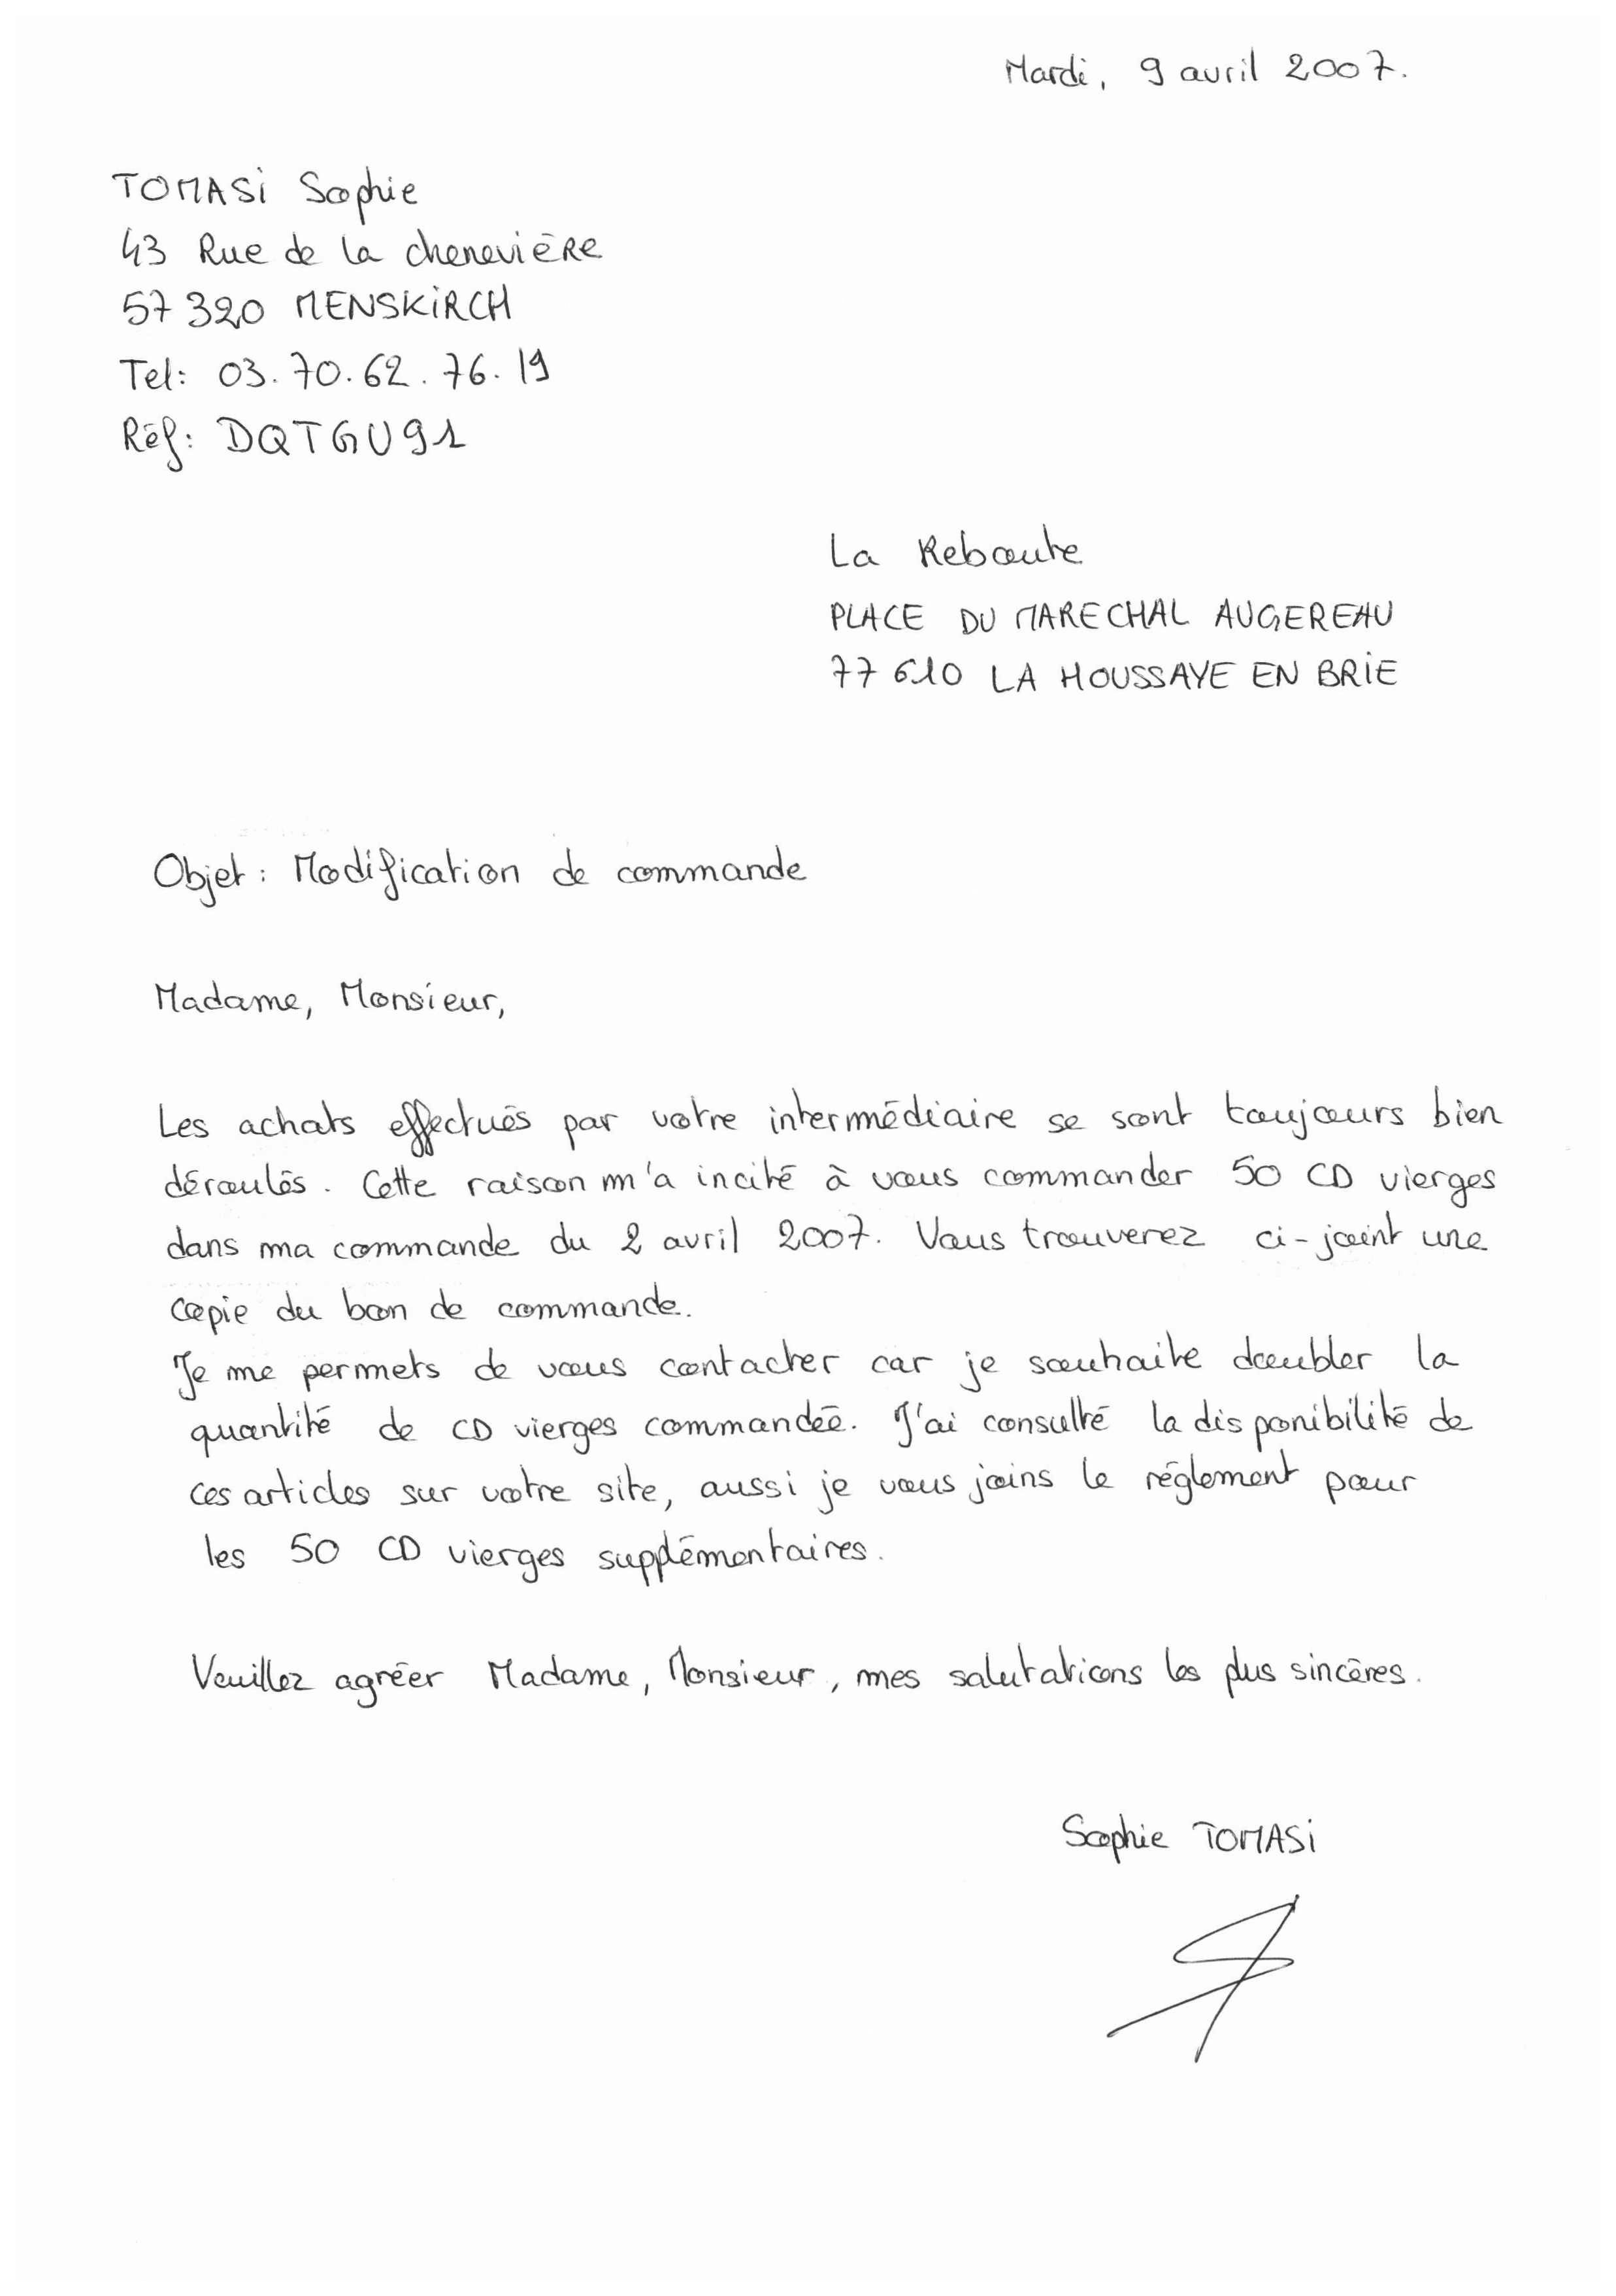 Mardi, 9 avril 2007.
TOMASi Sophie
43 Rue de la chenevière
57320 MENSKiRCH
Tel: 03.70.62.76.19
Réf: DQTGU91
La Reboute
PLACE DU MARECHAL AUGEREAU
77610 LA HOUSSAYE EN BRiE
Objet : Modification de commande
Madame, Monsieur,
Les achats effectués par votre intermédiaire se sont toujours bien
déroulés. Cette raison m'a incité à vous commander 50 CD vierges
dans ma commande du 2 avril 2007. Vous trouverez ci-joint une
copie du bon de commande.
Je me permets de vous contacter car je souhaite doubler la
quantité de CD vierges commandée. J'ai consulté la disponibilité de
ces articles sur votre site, aussi je vous joins le réglement pour
les 50 CD vierges supplémentaires.
Veuillez agréer Madame, Monsieur, mes salutations les plus sincères.
Sophie TOMASi